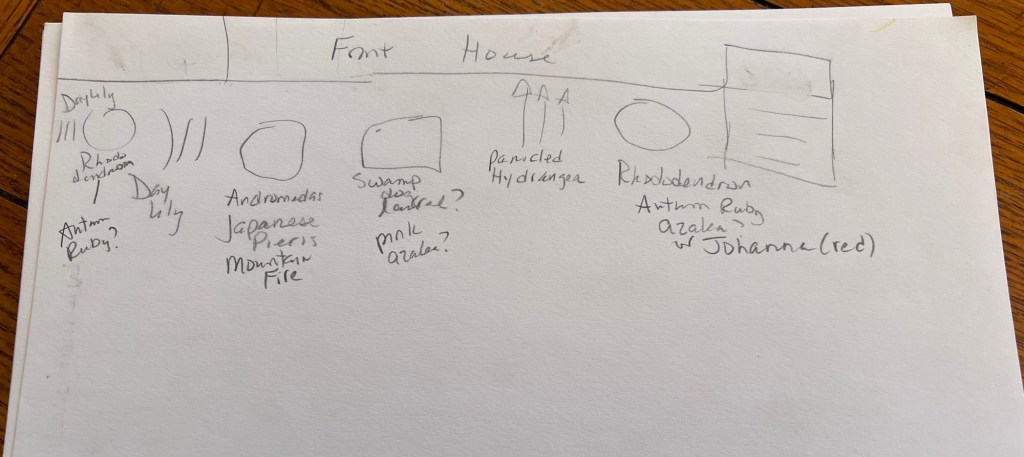 Front House
Daylily
Rhodo
dendron
Autumn
Ruby?
Day
lily
Andromedas
Japanese
Pieris
Mountain
Fire
Swamp
dog
laurel?
pink
azalea?
Panicled
Hydrangea
Rhododendron
Autum Ruby
azalea?
w Johanna (red)